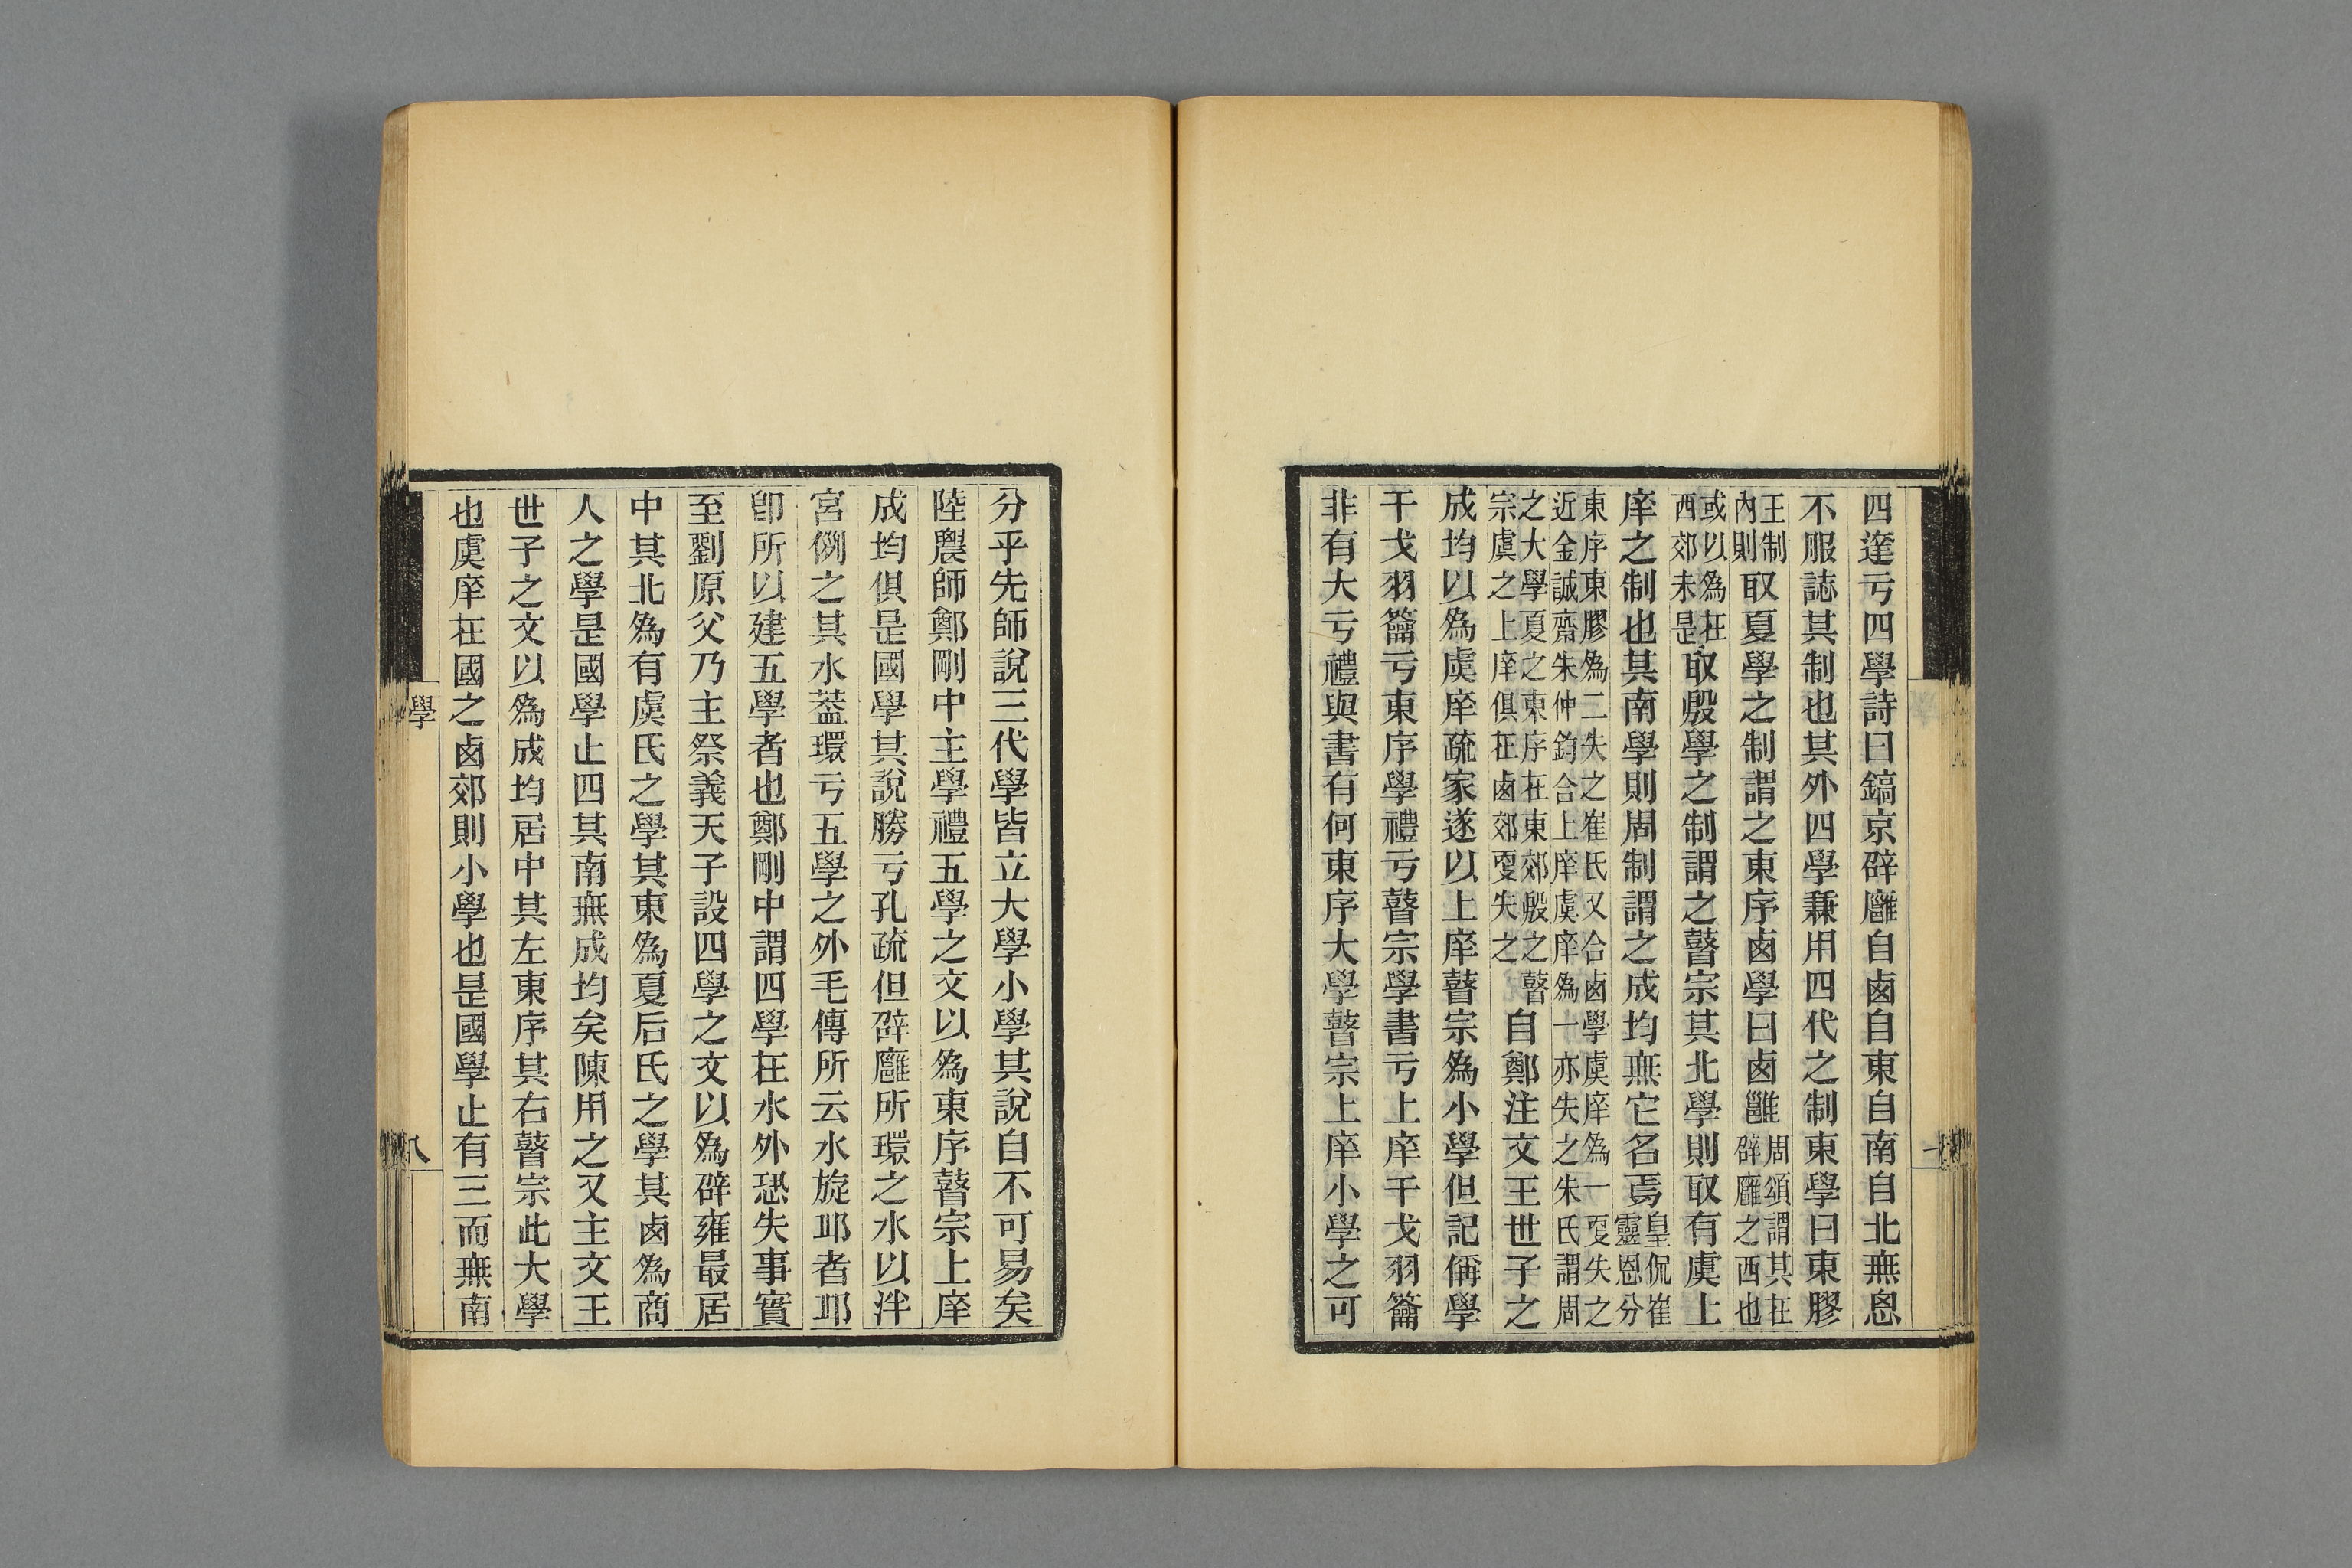 四達亏四學詩曰鎬京辟廱自鹵自東自南自北無恖
不服誌其制也其外四學兼用四代之制東學曰東膠
王制內則取夏學之制謂之東序鹵學曰鹵雝周頌謂其在辟廱之西也
或以爲在西郊未是取殷學之制謂之瞽宗其北學則取有虞上
庠之制也其南學則周制謂之成均無它名焉皇侃崔靈恩分
東序東膠爲二失之崔氏又合鹵學虞庠爲一㪅失之近金誠齋朱仲鈞合上庠虞庠爲一亦失之朱氏謂周
之大學夏之東序在東郊殷之瞽宗虞之上庠俱在鹵郊㪅失之自鄭注文王世子之
成均以爲虞庠疏家遂以上庠瞽宗爲小學但記偁學
干戈羽籥亏東序學禮亏瞽宗學書亏上庠干戈羽籥
非有大亏禮與書有何東序大學瞽宗上庠小學之可
分乎先師說三代學皆立大學小學其說自不可易矣
陸農師鄭剛中主學禮五學之文以爲東序瞽宗上庠
成均俱是國學其說勝亏孔疏但辟廱所環之水以泮
宮例之其水葢環亏五學之外毛傳所云水旋丠者丠
卽所以建五學者也鄭剛中謂四學在水外恐失事實
至劉原父乃主祭義天子設四學之文以爲辟雍最居
中其北爲有虞氏之學其東爲夏后氏之學其鹵爲商
人之學是國學止四其南無成均矣陳用之又主文王
世子之文以爲成均居中其左東序其右瞽宗此大學
也虞庠在國之鹵郊則小學也是國學止有三而無南
學
八